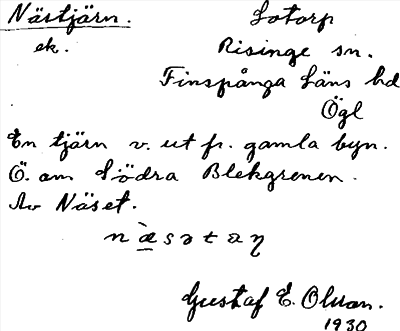 Nästjärn. Sotorp
ek. Risinge sn.
Finspånga läns hd
Ögl
En tjärn v. ut fr. gamla byn.
Ö. om Södra Blekgrenen.
Av Näset.
Gustaf E. Olsson.
1930